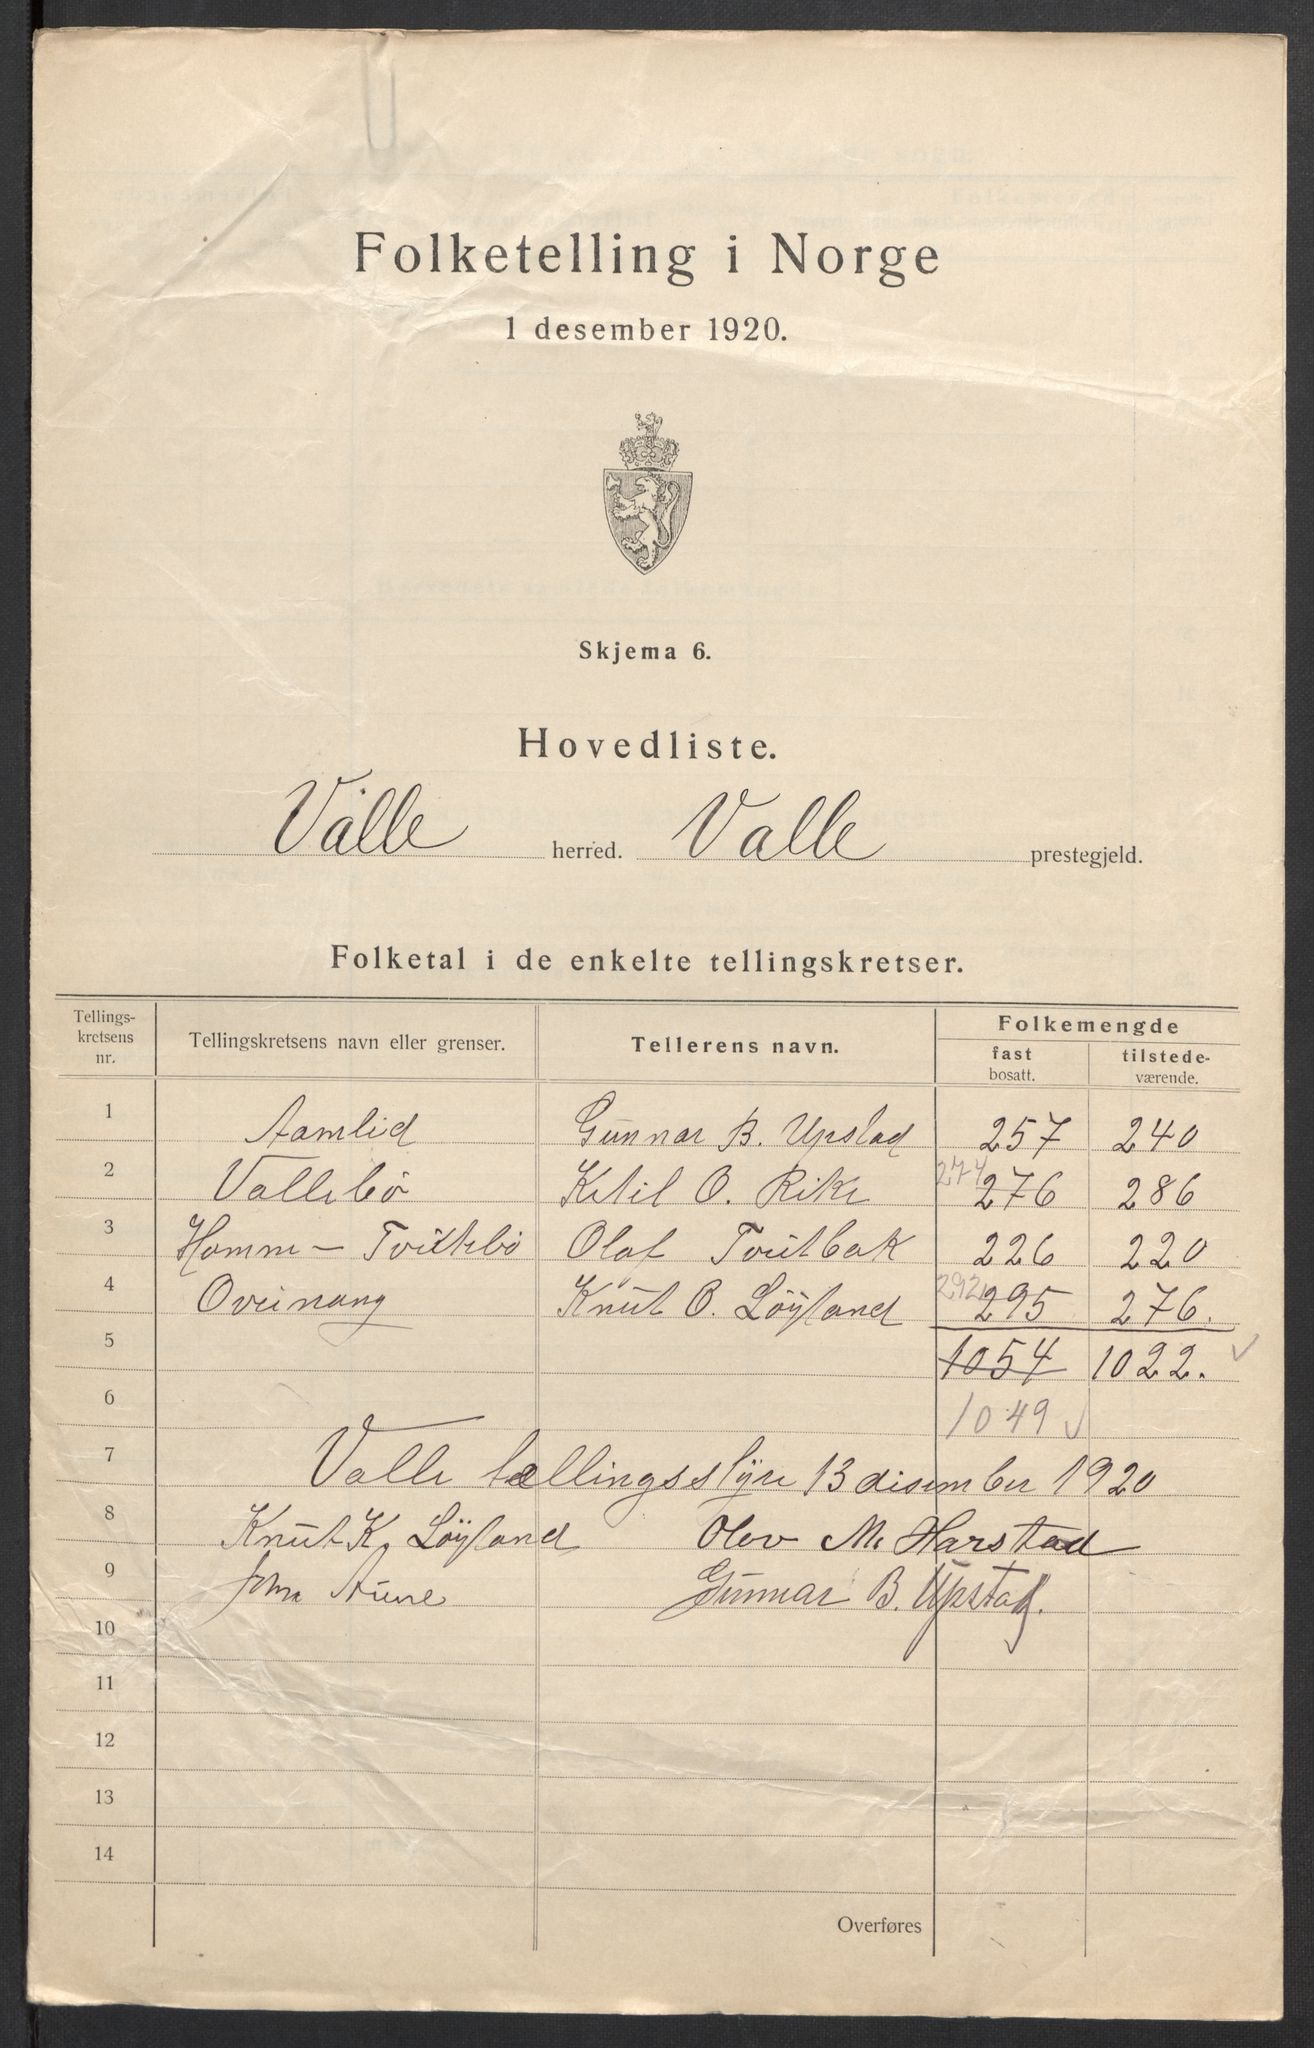 Folketelling i Norge
1 desember 1920.
Skjema 6.
Hovedliste.
Valle herred. Valle prestegjeld.
Folketal i de enkelte tellingskretser.
Tellings-
kretsens
nr.
Tellingskretsens navn eller grenser.
Tellerens navn.
Folkemengde
fast
bosatt.
tilstede-
værende.
1 Aamlid Gunnar B. Upstad 257 240
2 Vallebö Ketil O. Rike 274 276 286
3 Homme - Tveitebö Olaf Tveitbak 226 220
4 Oveinang Knut O. Löyland 292 295 276.
5 1054 1022.
6 1049
7 Valle tællingsstyre 13 desember 1920
8 Knut K. Löyland Olov M. Harstad
9 Aune Gunnar B. Upstad.
10
11
12
13
14
Overføres